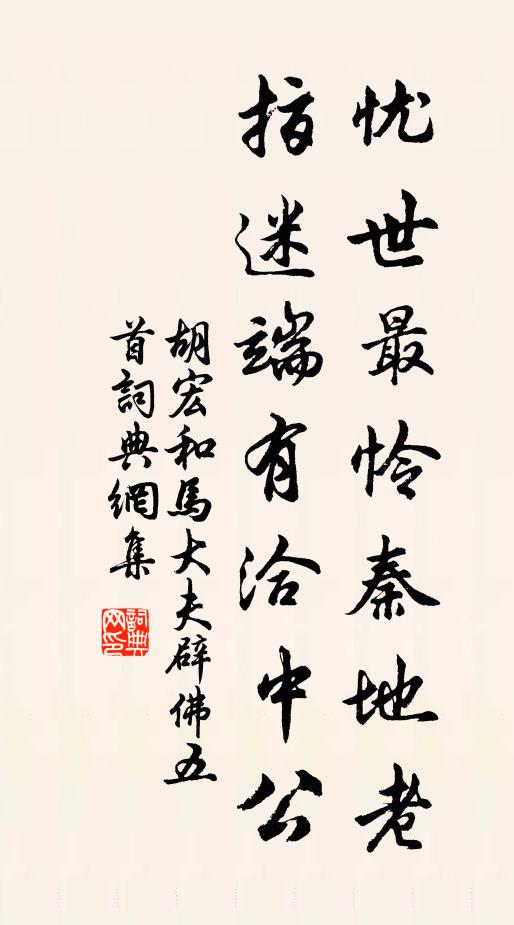 忧世最怜秦地老
指迷端有洽中公
胡宏和馬大夫辟佛五
首詞典網集
詞典网印